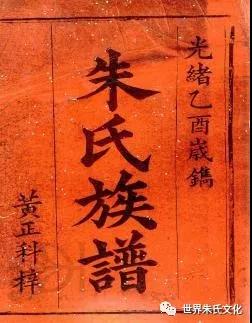 光緒乙酉歲鐫
朱氏族譜
黃正科梓
世界朱氏文化